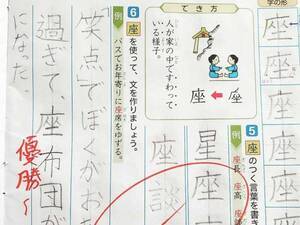 学の形
でき方
人が家の中ですわって
いる様子。
座 ← 座
5 座のつく言葉を書き
例 座長 座高 座
星座
座
座談
6 座を使って、文を作りましょう。
例 バスでお年寄りに座席をゆずる。
「笑点」でぼくがお
過ぎて座布団が
になった
優勝〜